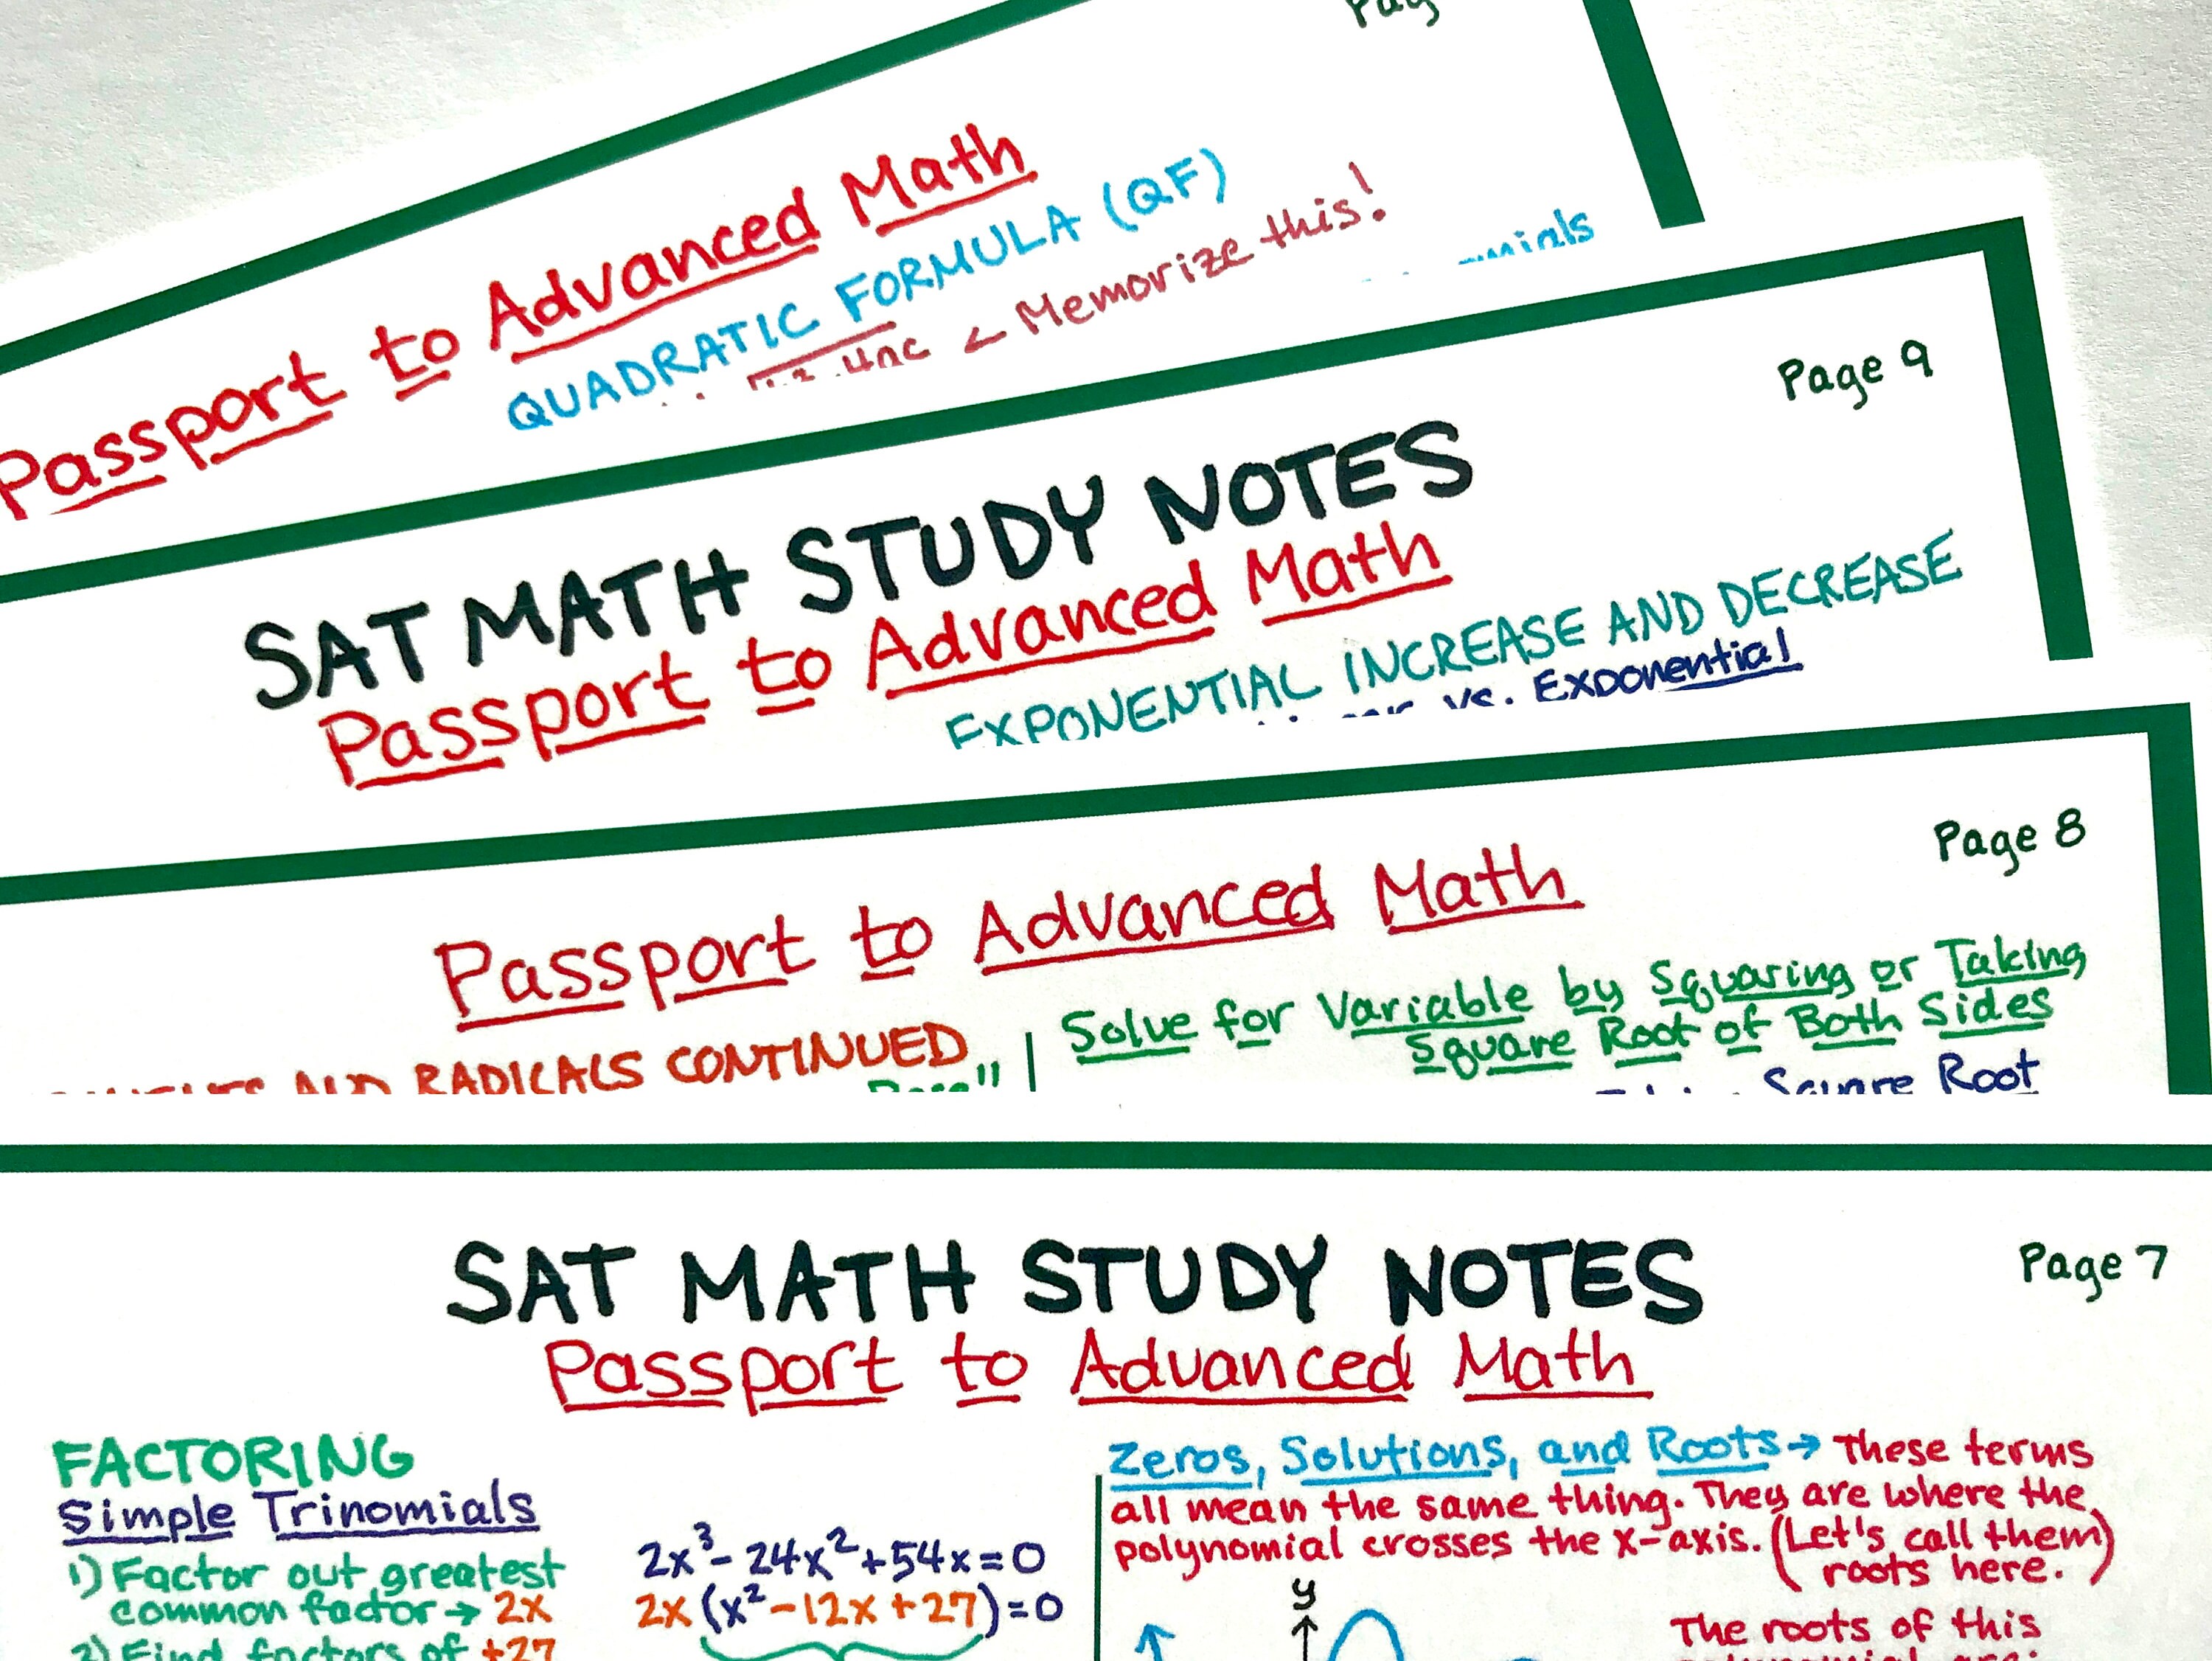 Passport to Advanced Math
QUADRATIC FORMULA (QF)
4ac < Memorize this!
Page 9
SAT MATH STUDY NOTES
Passport to Advanced Math
EXPONENTIAL INCREASE AND DECREASE
vs. Exponential
Page 8
Passport to Advanced Math
AND RADICALS CONTINUED
Solve for Variable by Squaring or Taking
Square Root of Both Sides
Square Root
SAT MATH STUDY NOTES
Page 7
Passport to Advanced Math
FACTORING
Simple Trinomials
1) Factor out greatest
common factor → 2x
2) Find factors of +27
2x³ - 24x² + 54x = 0
2x (x² - 12x + 27) = 0
Zeros, Solutions, and Roots → These terms
all mean the same thing. They are where the
polynomial crosses the x-axis. (Let's call them
roots here.)
y
The roots of this